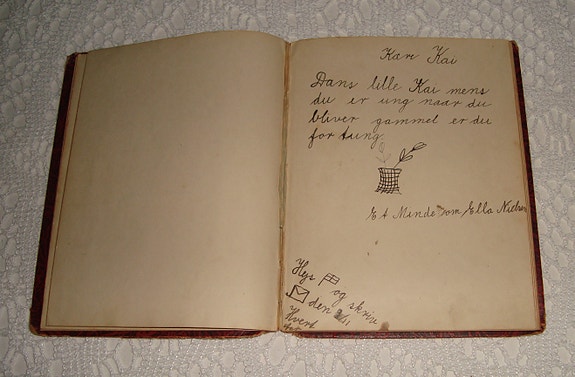 Kære Kai
Dans lille Kai mens
du er ung naar du
bliver gammel er du
for tung.
Et Minde om Ella Nielsen
Hejs
og skriv
den
Hvert